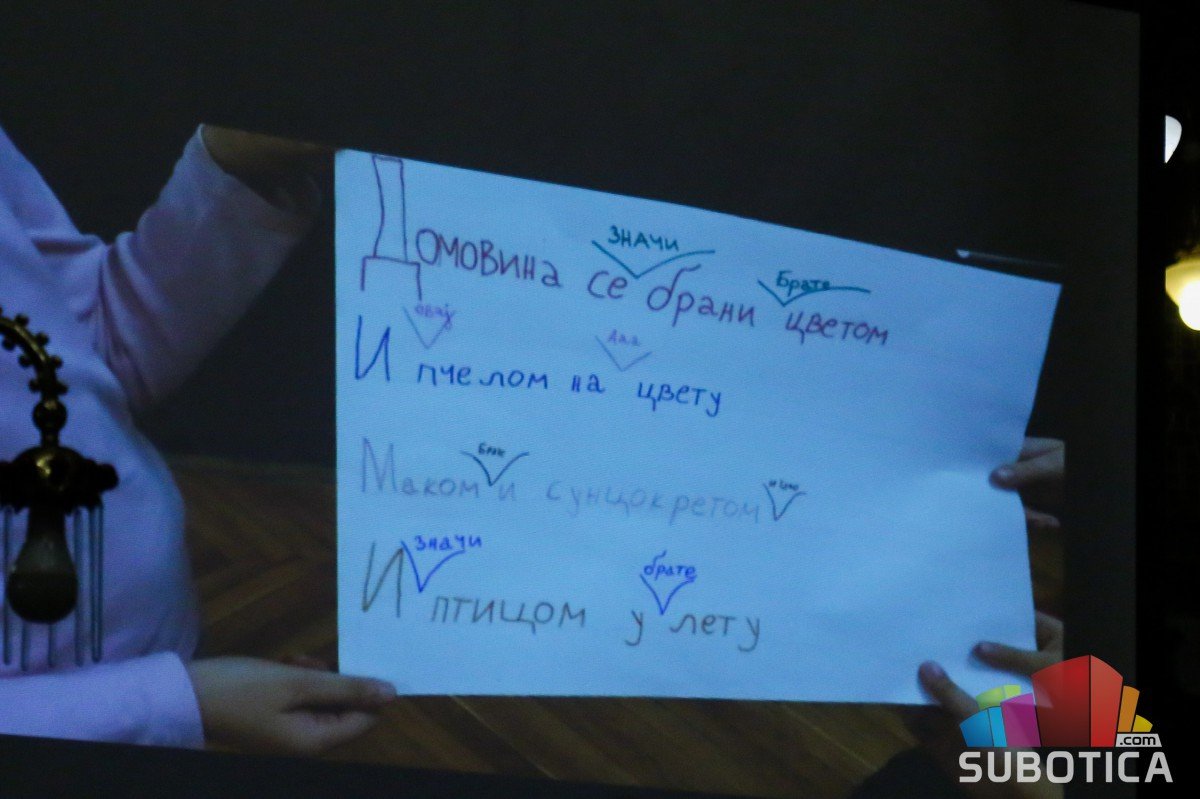 значи Брате
Домовина се брани цветом
овај
И пчелом на цвету
Маком и сунцокретом
значи брате
И птицом у лету
SUBOTICA.com